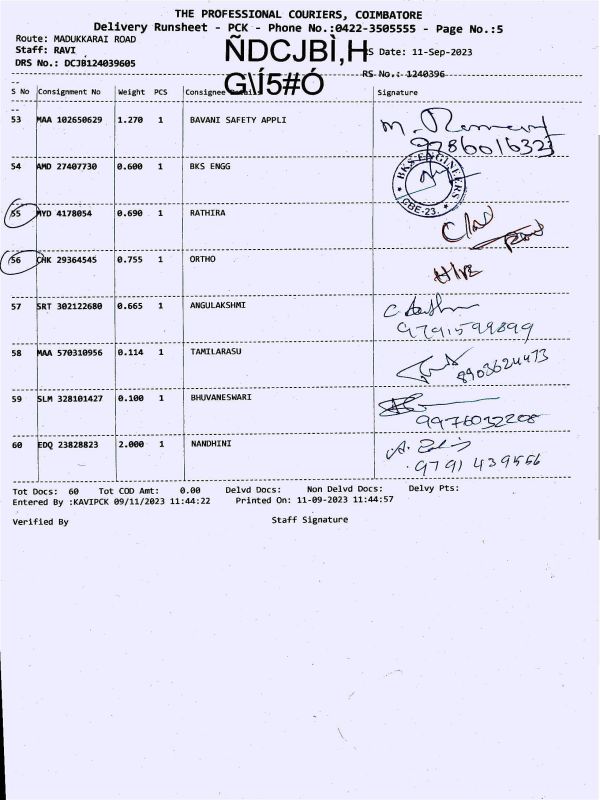 THE PROFESSIONAL COURIERS, COIMBATORE
Delivery Runsheet - PCK - Phone No.:0422-3505555 - Page No.:5
Route: MADUKKARAI ROAD
Staff: RAVI
ÑDCJBÌ,H
S Date: 11-Sep-2023
DRS No.: DCJB124039605
G\Í5#Ó
RS No.: 1240396
S No Consignment No Weight PCS Consignee Details Signature
53 MAA 102650629 1.270 1 BAVANI SAFETY APPLI
9786016323
54 AMD 27407730 0.600 1 BKS ENGG
BKS ENGINEERS
CBE-23.
55 MYD 4178054 0.690 1 RATHIRA
56 CHK 29364545 0.755 1 ORTHO
57 SRT 302122680 0.665 1 ANGULAKSHMI
9791599899
58 MAA 570310956 0.114 1 TAMILARASU
8903624473
59 SLM 328101427 0.100 1 BHUVANESWARI
9976032208
60 EDQ 23828823 2.000 1 NANDHINI
9791 439566
Tot Docs: 60 Tot COD Amt: 0.00 Delvd Docs: Non Delvd Docs: Delvy Pts:
Entered By :KAVIPCK 09/11/2023 11:44:22 Printed On: 11-09-2023 11:44:57
Verified By Staff Signature